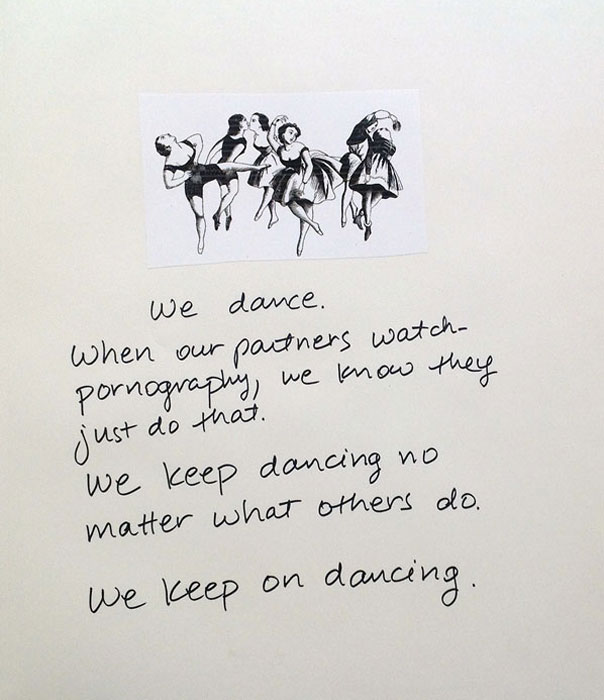 We dance.
When our partners watch-
pornography, we know they
just do that.
We keep dancing no
matter what others do.
We keep on dancing.